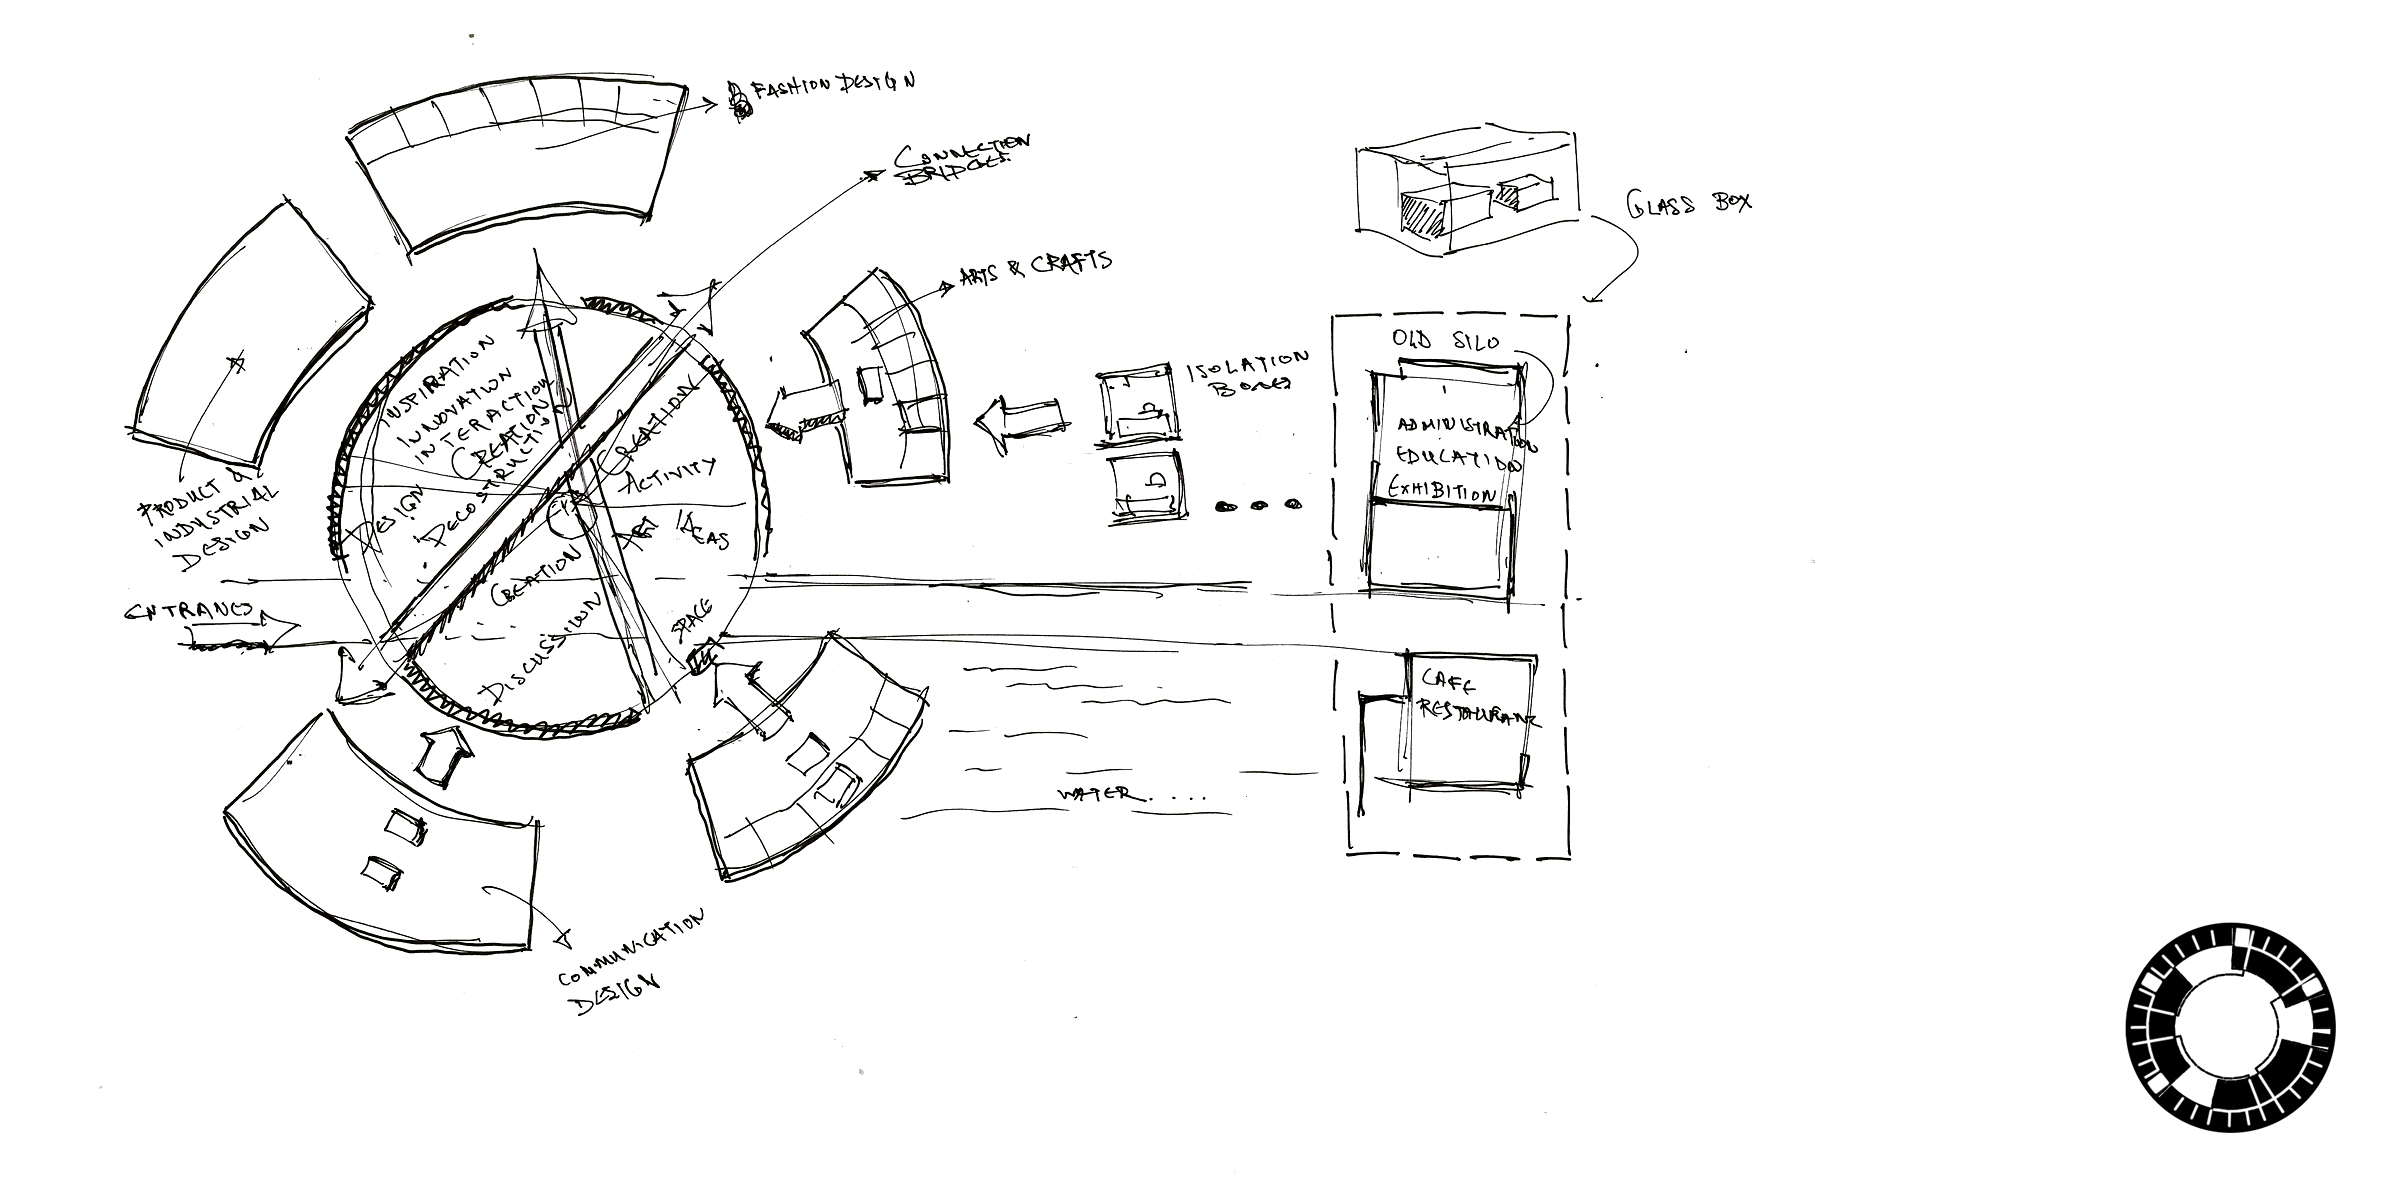 FASHION DESIGN
CONNECTION
BRIDGES
ARTS & CRAFTS
GLASS BOX
ISOLATION
BOXES
OLD SILO
ADMINISTRATION
EDUCATION
EXHIBITION
INSPIRATION
INNOVATION
INTERACTION
CREATION
DECOSTRUCTION
DESIGN
CREATION
ACTIVITY
ART IDEAS
CREATION
DISCUSSION
SPACE
PRODUCT &
INDUSTRIAL
DESIGN
CAFE
WATER....
COMMUNICATION
DESIGN